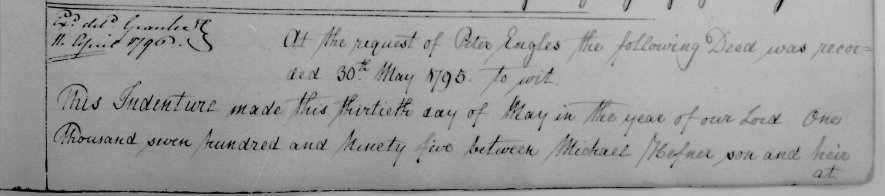 Ex.d del.d Grantee
11. April 1796.
At the request of Peter Engles the following Deed was recor=
ded 30th May 1795. to wit.
This Indenture made this thirtieth day of May in the year of our Lord One
Thousand seven hundred and Ninety five between Michael Hefner son and heir
at